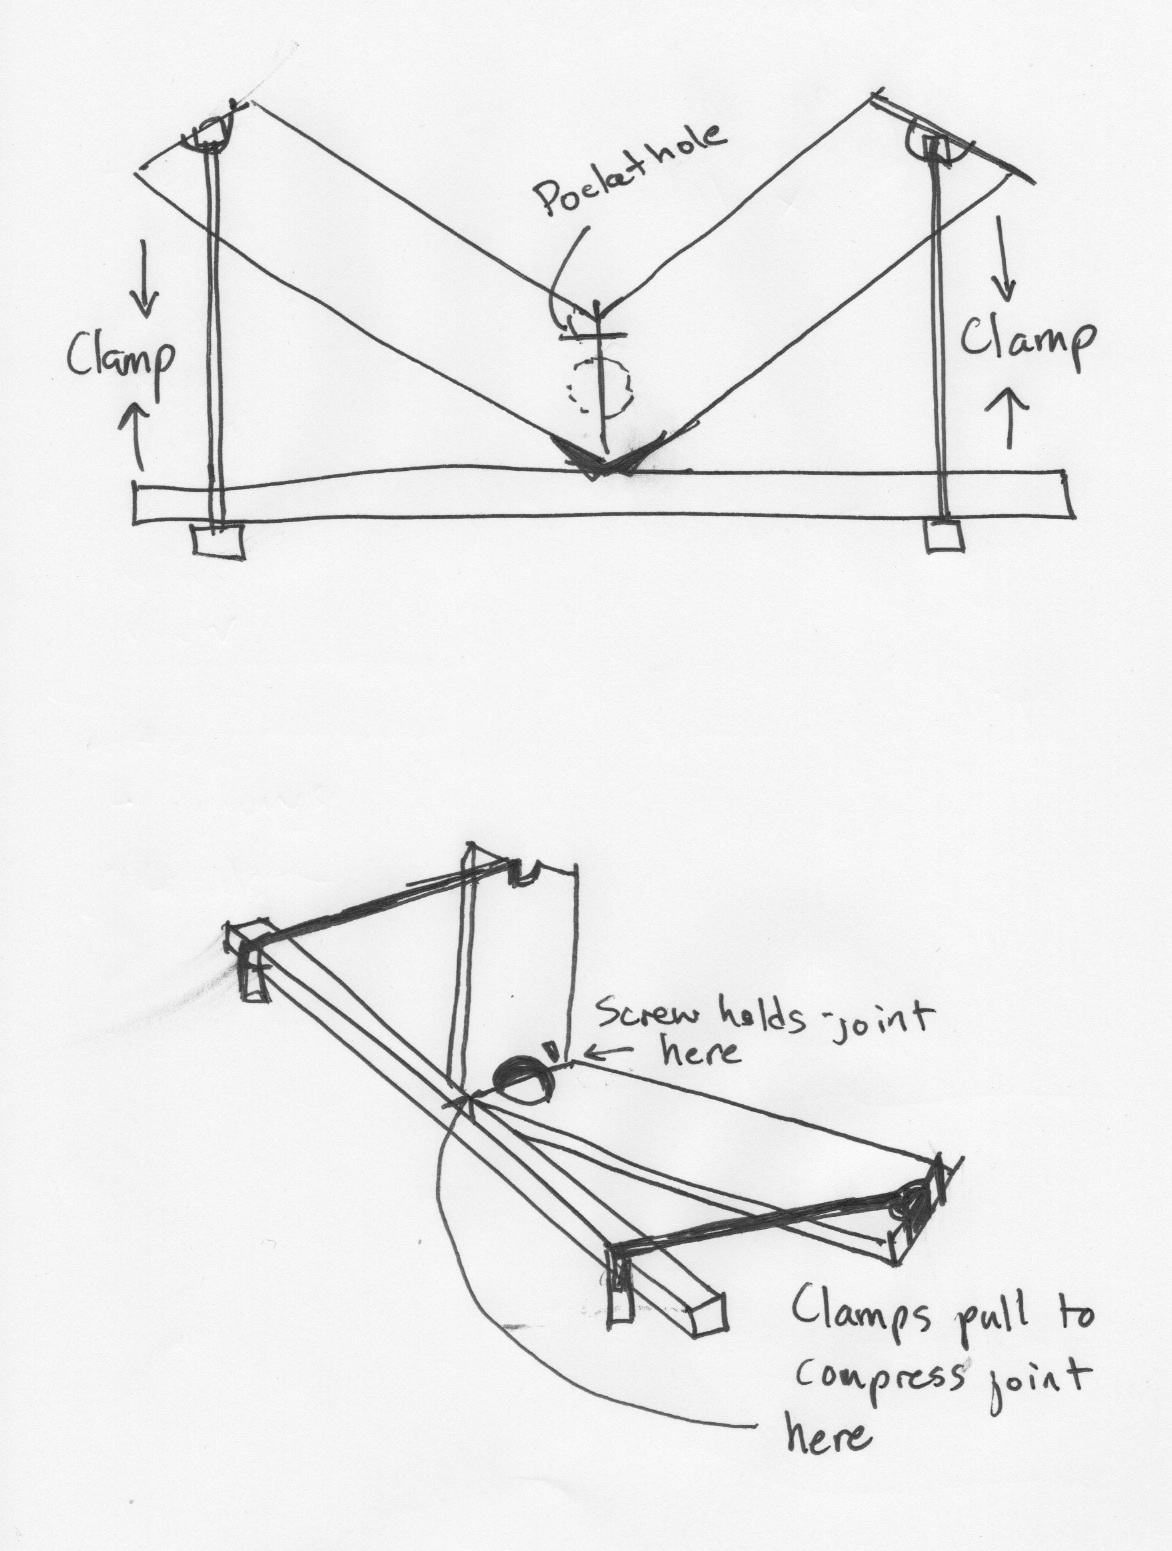 Pocket hole
Clamp
Clamp
Screw holds joint
here
Clamps pull to
compress joint
here